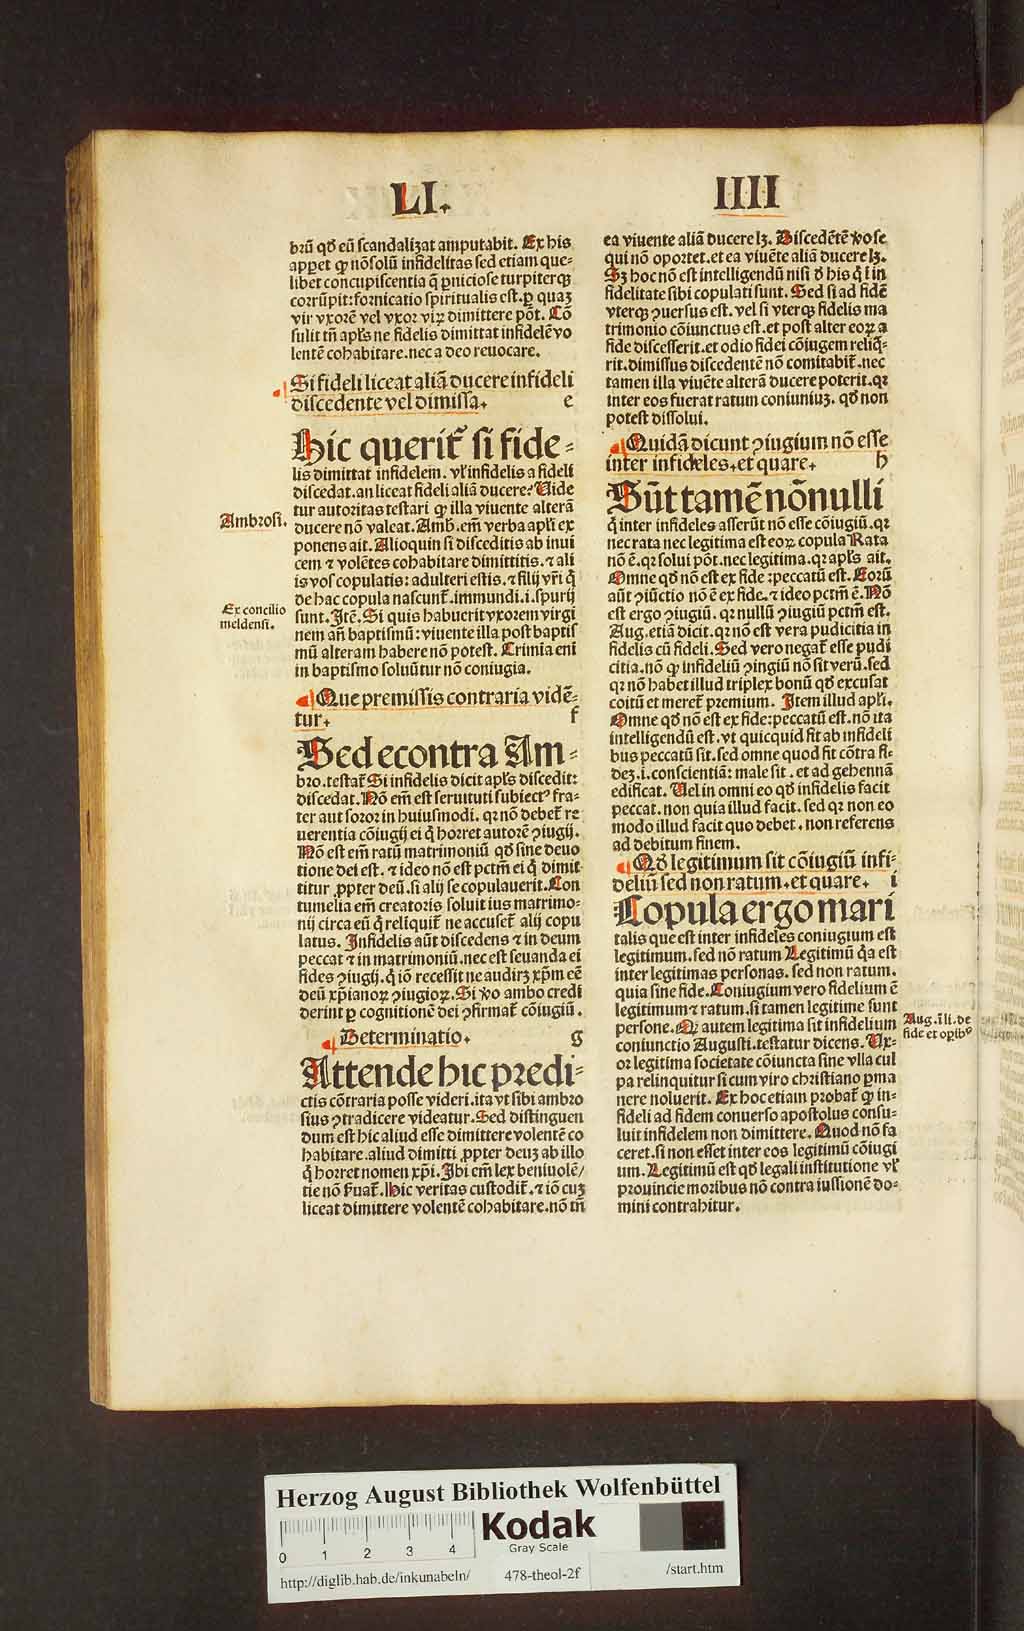 LI.
IIII
brū qđ eū scandalizat amputabit. Ex his
apꝑet ꝙ nōsolū infidelitas sed etiam que-
libet concupiscentia q̄ ꝑniciose turpiterqꝫ
corrūpit: fornicatio spiritualis est. ꝑ quaꝫ
vir vxorē vel vxor virꝫ dimittere pōt. Cō
sulit tn̄ apl's ne fidelis dimittat infidelē vo
lentē cohabitare. nec a deo reuocare.
Si fideli liceat aliā ducere infideli
discedente vel dimissa. e
Hic querit̄ si fide-
lis dimittat infidelem. vl' infidelis a fideli
discedat. an liceat fideli aliā ducere? Uide
tur autoritas testari ꝙ illa viuente alterā
Ambrosi.
ducere nō valeat. Amb. em̄ verba apl'i ex
ponens ait. Alioquin si disceditis ab inui
cem ⁊ volētes cohabitare dimittitis. ⁊ ali
is vos copulatis: adulteri estis. ⁊ filij vr̄i q̇
de hac copula nascunt̄. immundi .i. spurij
Ex concilio
meldensi.
sunt. Itē. Si quis habuerit vxorem virgi
nem an̄ baptismū: viuente illa post baptis
mū alteram habere nō potest. Crimīa eni
in baptismo soluūtur nō coniugia.
Que premissis contraria vidē-
tur. f
Sed econtra Am-
bro. testat̄ Si infidelis dicit apl's discedit:
discedat. Nō em̄ est seruituti subiectꝰ fra-
ter aut soror in huiusmodi. qꝛ nō debet̄ re
uerentia cōiugij ei q̇ horret autorē ꝯiugij.
Nō est em̄ ratū matrimoniū qđ sine deuo
tione dei est. ⁊ ideo nō est pctm̄ ei q̇ dimit
titur ꝓpter deū. si alij se copulauerit. Con
tumelia em̄ creatoris soluit ius matrimo-
nij circa eū q̇ reliquit̄ ne accuset̄ alij copu
latus. Infidelis aūt discedens ⁊ in deum
peccat ⁊ in matrimoniū. nec est seuanda ei
fides ꝯiugij. q̇ iō recessit ne audirꝫ xp̄m eē
deū xp̄ianoꝝ ꝯiugioꝝ. Si v̊o ambo credi
derint ꝑ cognitionē dei ꝯfirmat̄ cōiugiū.
Determinatio. g
Attende hic predi-
ctis cōtraria posse videri. ita vt sibi ambro
sius ꝯtradicere videatur. Sed distinguen
dum est hic aliud esse dimittere volentē co
habitare. aliud dimitti ꝓpter deuꝫ ab illo
q̇ horret nomen xp̄i. Ibi em̄ lex beniuolē/
tie nō ẜuat̄. Hic veritas custodit̄. ⁊ iō cuꝫ
liceat dimittere volentē cohabitare. nō tn̄
ea viuente aliā ducere lꝫ. Discedētē v̊o se
qui nō oportet. et ea viuēte aliā ducere lꝫ.
Sꝫ hoc nō est intelligendū nisi đ his q̇ ī in
fidelitate sibi copulati sunt. Sed si ad fidē
vterqꝫ ꝯuersus est. vel si vterqꝫ fidelis ma
trimonio cōiunctus est. et post alter eoꝝ a
fide discesserit. et odio fidei cōiugem reliq̇-
rit. dimissus discedentē nō comitabit̄. nec
tamen illa viuēte alterā ducere poterit. qꝛ
inter eos fuerat ratum coniuniuꝫ. qđ non
potest dissolui.
Quidā dicunt ꝯiugium nō esse
inter infideles. et quare. h
Sūt tamē nōnulli
q̇ inter infideles asserūt nō esse cōiugiū. qꝛ
nec rata nec legitima est eoꝝ copula Rata
nō ē. qꝛ solui pōt. nec legitima. qꝛ apl's ait.
Omne qđ nō est ex fide: peccatū est. Eorū
aūt ꝯiūctio nō ē ex fide. ⁊ ideo pctm̄ ē. Nō
est ergo ꝯiugiū. qꝛ nullū ꝯiugiū pctm̄ est.
Aug. etiā dicit. qꝛ nō est vera pudicitia in
fidelis cū fideli. Sed vero negat̄ esse pudi
citia. nō ꝙ infideliū ꝯingiū nō sit verū. sed
qꝛ nō habet illud triplex bonū qđ excusat
coitū et meret̄ premium. Item illud apl'i.
Omne qđ nō est ex fide: peccatū est. nō ita
intelligendū est. vt quicquid fit ab infideli
bus peccatū sit. sed omne quod fit cōtra fi-
deꝫ .i. conscientiā: male fit. et ad gehennā
edificat. Uel in omni eo qđ infidelis facit
peccat. non quia illud facit. sed qꝛ non eo
modo illud facit quo debet. non referens
ad debitum finem.
Qđ legitimum sit cōiugiū infi-
deliū sed non ratum. et quare. i
Copula ergo mari
talis que est inter infideles coniugium est
legitimum. sed nō ratum Legitimū q̇a est
inter legitimas personas. sed non ratum.
quia sine fide. Coniugium vero fidelium ē
legitimum ⁊ ratum. si tamen legitime sunt
Aug. ī li. de
fide et oꝑibꝰ
persone. Qꝛ autem legitima sit infidelium
coniunctio Augusti. testatur dicens. Ux-
or legitima societate cōiuncta sine vlla cul
pa relinquitur si cum viro christiano ꝑma
nere noluerit. Ex hoc etiam probat̄ ꝙ in-
fideli ad fidem conuerso apostolus consu-
luit infidelem non dimittere. Quod nō fa
ceret. si non esset inter eos legitimū cōiugi
um. Legitimū est qđ legali institutione vl'
prouincie moribus nō contra iussionē do-
mini contrahitur.
Herzog August Bibliothek Wolfenbüttel
Kodak
Gray Scale
0 1 2 3 4
http://diglib.hab.de/inkunabeln/ 478-theol-2f /start.htm